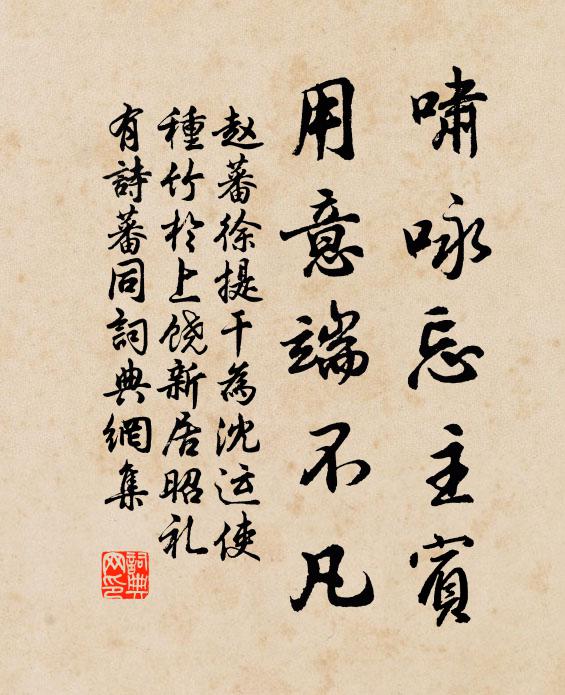 啸咏忘主宾
用意端不凡
赵蕃徐提干為沈运使
種竹於上饶新居昭礼
有詩蕃同詞典網集
詞典
网印